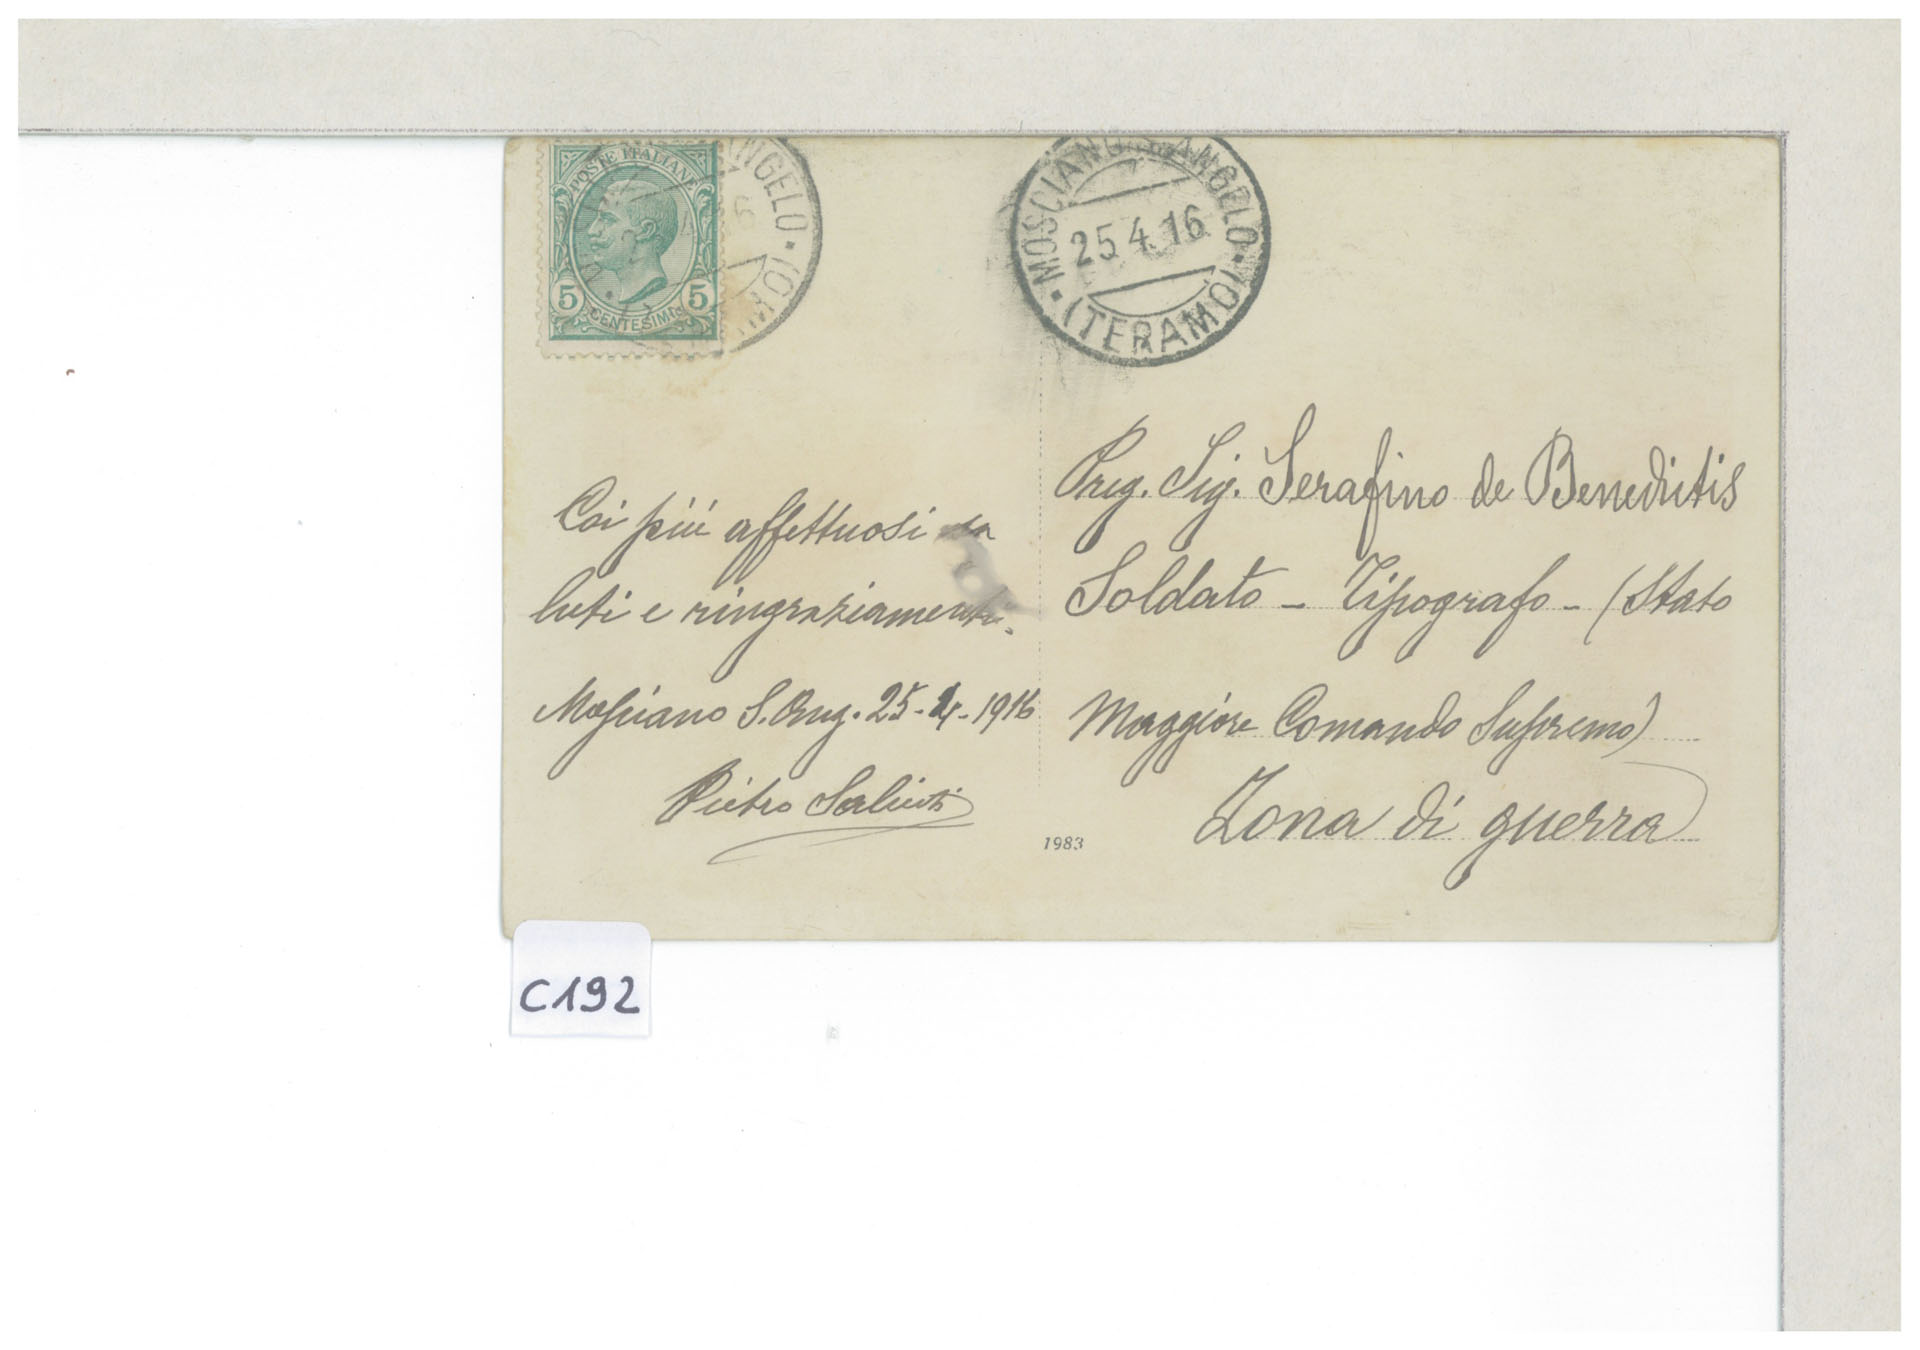 POSTE ITALIANE
5 CENTESIMI 5
ANGELO
MOSCIANO S. ANGELO
25.4.16
(TERAMO)
Coi più affettuosi sa
luti e ringraziamenti.
Mosciano S. Ang. 25-4-1916
Pietro Saliuti
Preg. Sig. Serafino de Benedictis
Soldato - Tipografo - (Stato
Maggiore Comando Supremo)
Zona di guerra
1983
C192